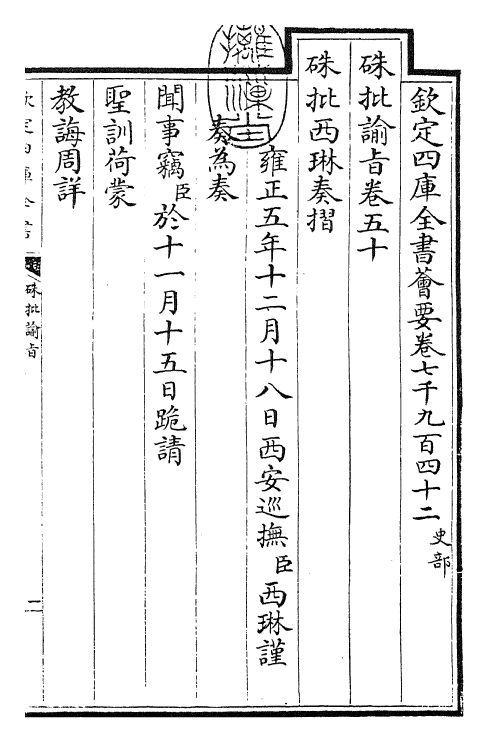 欽定四庫全書薈要卷七千九百四十二 史部
硃批諭旨卷五十
硃批西琳奏摺
雍正五年十二月十八日西安巡撫臣西琳謹
奏為奏
聞事竊臣於十一月十五日跪請
聖訓荷蒙
教誨周詳
欽定四庫全書
硃批諭旨